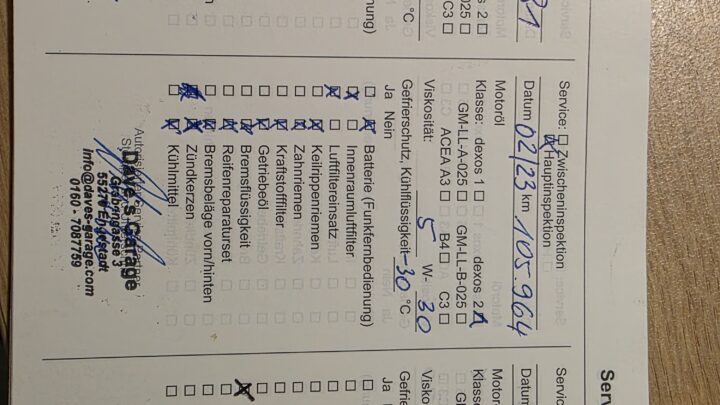 Service: ☐ Zwischeninspektion
☒ Hauptinspektion
Datum 02/23 km 105.964
Motoröl
Klasse: dexos 1 ☐ dexos 2 ☒
☐ GM-LL-A-025 ☐ GM-LL-B-025 ☐
☐ ACEA A3 ☐ B4 ☐ C3 ☐
Viskosität: 5 W- 30
Gefrierschutz, Kühlflüssigkeit -30 °C
Ja Nein
☐ ☒ Batterie (Funkfernbedienung)
☒ ☐ Innenraumluftfilter
☒ ☐ Luftfiltereinsatz
☐ ☒ Keilrippenriemen
☐ ☒ Zahnriemen
☐ ☒ Kraftstofffilter
☐ ☒ Getriebeöl
☐ ☒ Bremsflüssigkeit
☐ ☒ Reifenreparaturset
☐ ☒ Bremsbeläge vorn/hinten
☒ ☒ Zündkerzen
☐ ☒ Kühlmittel
Dave's Garage
Grabengasse 3
info@daves-garage.com
0160 - 7087759
Serv
Datum
Motoröl
Klasse
☐ GM
☐
Visko
Gefrie
Ja